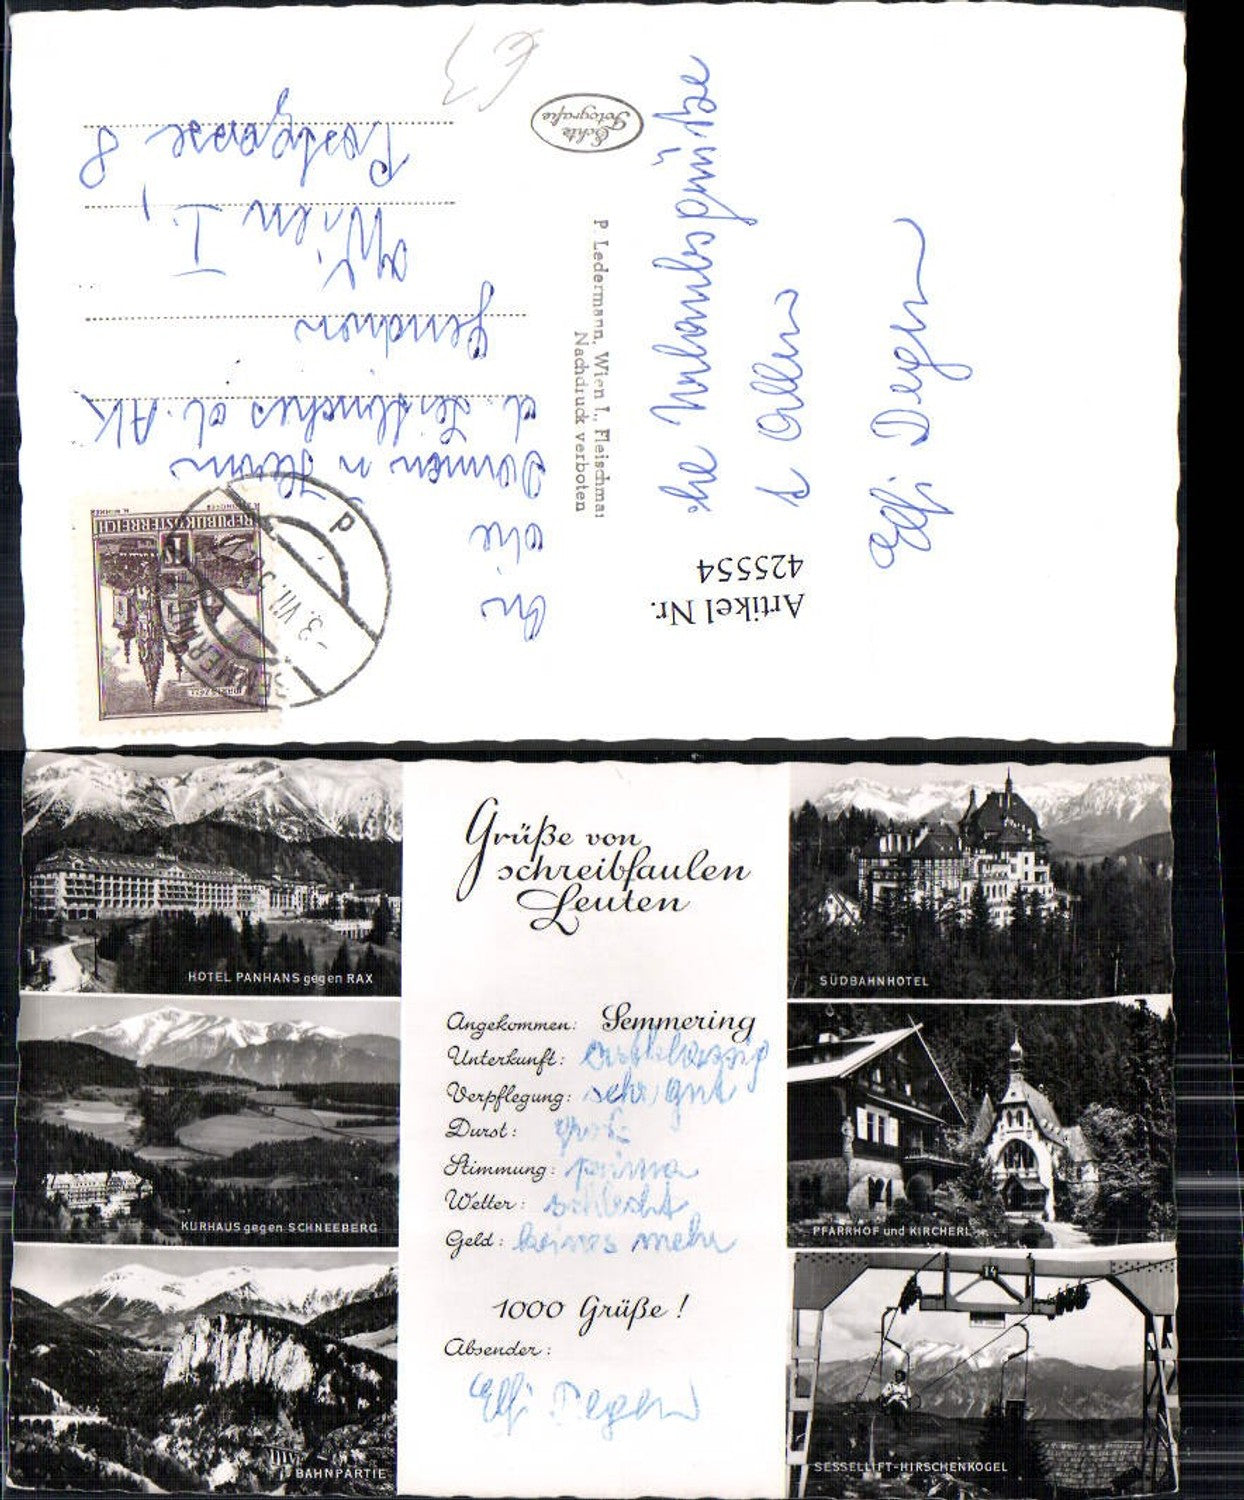 € 3
Echte
Fotografie
An
die
Damen u Herrn
d.
d. AK
Wien I.,
8
P. Ledermann, Wien I., Fleischma
Nachdruck verboten
Urlaubsgrüße
Elfi Degen
Artikel Nr.
425554
REPUBLIK ÖSTERREICH
-3. VII. 5
p
Grüße von
schreibfaulen
Leuten
Angekommen: Semmering
Unterkunft: erstklassig
Verpflegung: sehr gut
Durst: groß
Stimmung: prima
Wetter: schlecht
Geld: keines mehr
1000 Grüße!
Absender:
Elfi Degen
HOTEL PANHANS gegen RAX
KURHAUS gegen SCHNEEBERG
BAHNPARTIE
SÜDBAHNHOTEL
PFARRHOF und KIRCHERL
14
SESSELLIFT-HIRSCHENKOGEL